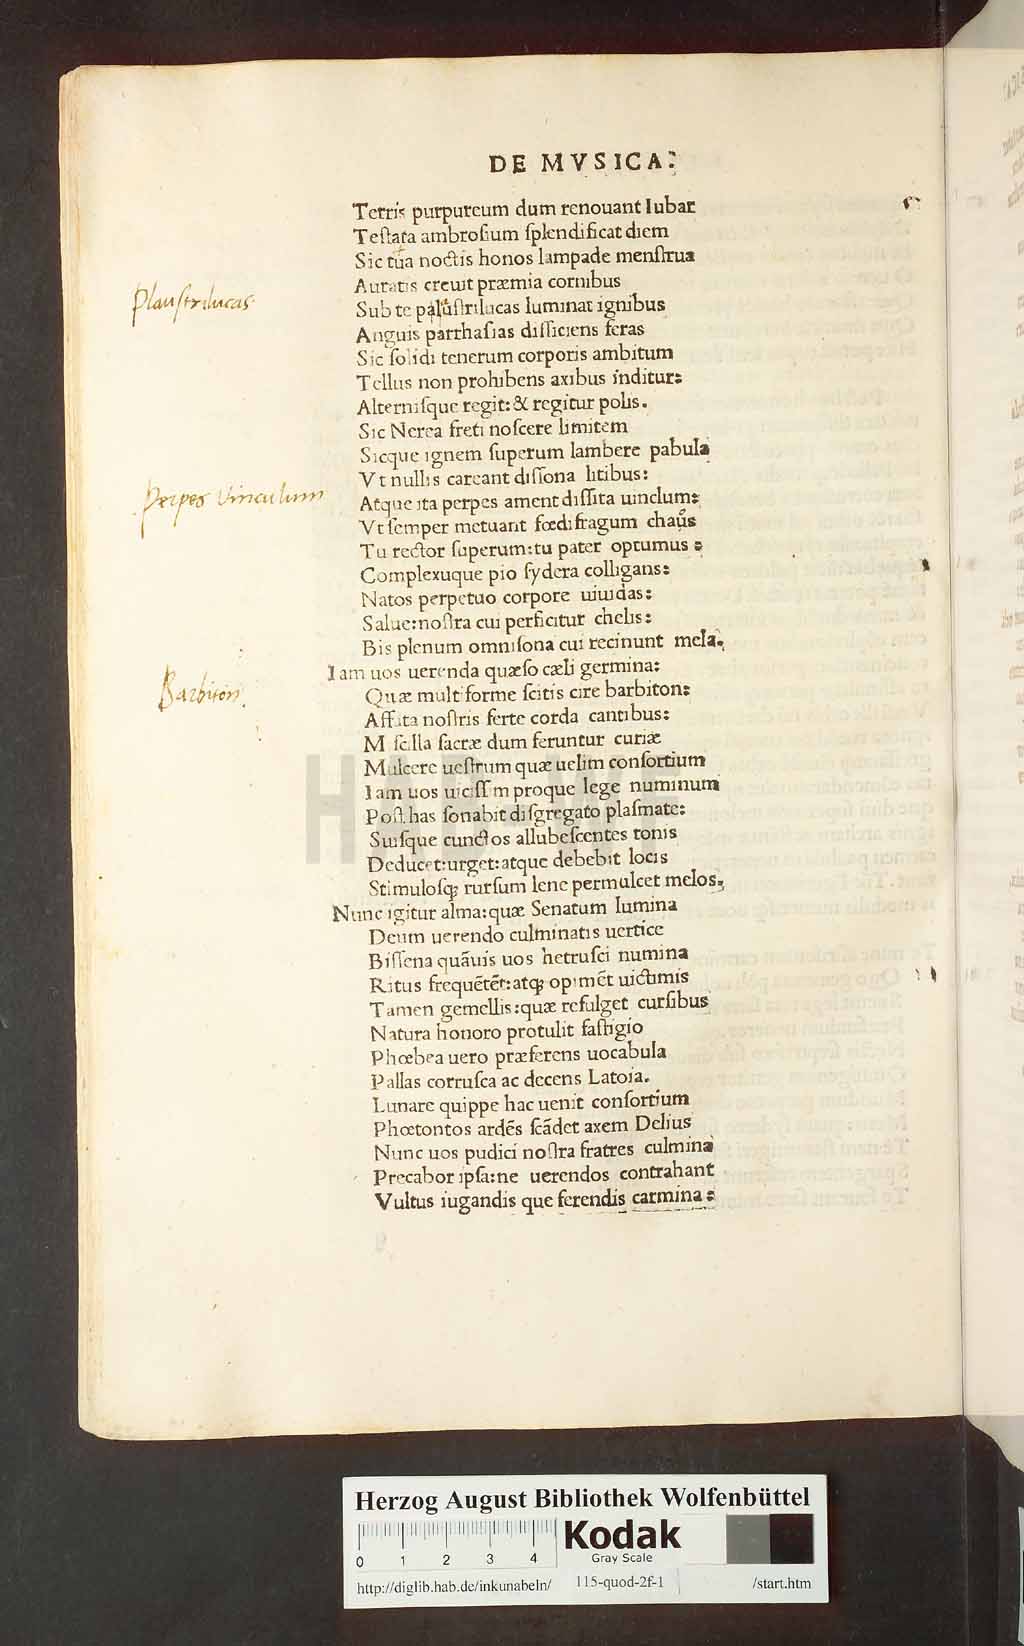 DE MVSICA:
Terris purpureum dum renouant Iubar
Teſtata ambroſium ſplendificat diem
Sic tua noctis honos lampade menſtrua
Auratis creuit præmia cornibus
Plauſtrilucas
Sub te paluſtrilucas luminat ignibus
Anguis parrhaſias diſſiciens feras
Sic ſolidi tenerum corporis ambitum
Tellus non prohibens axibus inditur:
Alterniſque regit: & regitur polis.
Sic Nerea freti noſcere limitem
Sicque ignem ſuperum lambere pabula
Vt nullis careant diſſona litibus:
Perpes Vinculum
Atque ita perpes ament diſſita uinclum:
Vt ſemper metuant fœdifragum chaus
Tu rector ſuperum: tu pater optumus:
Complexuque pio ſydera colligans:
Natos perpetuo corpore uiuidas:
Salue: noſtra cui perficitur chelis:
Bis plenum omniſona cui recinunt mela.
Iam uos uerenda quæſo cæli germina:
Barbiton.
Quæ multiforme ſcitis cire barbiton:
Affata noſtris ferte corda cantibus:
M ſcilla ſacræ dum feruntur curiæ
Mulcere ueſtrum quæ uelim conſortium
Iam uos uiciſſm proque lege numinum
Poſt has ſonabit diſgregato plaſmate:
Suiſque cunctos allubeſcentes tonis
Deducet: urget: atque debebit locis
Stimuloſq; rurſum lene permulcet melos.
Nunc igitur alma: quæ Senatum lumina
Deum uerendo culminatis uertice
Biſſena quãuis uos hetruſci numina
Ritus frequẽtẽt: atq; opimẽt uictimis
Tamen gemellis: quæ refulget curſibus
Natura honoro protulit faſtigio
Phœbea uero præferens uocabula
Pallas corruſca ac decens Latoia.
Lunare quippe hac uenit conſortium
Phœtontos ardẽs ſcãdet axem Delius
Nunc uos pudici noſtra fratres culmina
Precabor ipſa: ne uerendos contrahant
Vultus iugandis que ferendis carmina:
HAB-WF
Herzog August Bibliothek Wolfenbüttel
0 1 2 3 4
Kodak
Gray Scale
http://diglib.hab.de/inkunabeln/ 115-quod-2f-1 /start.htm